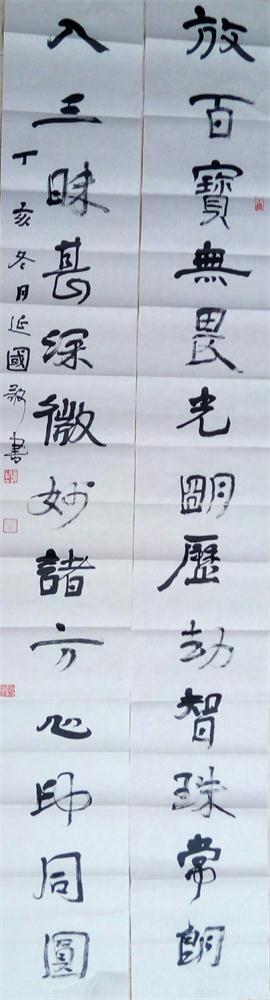 放百寶無畏光朙歷劫智珠常朗
入三昧甚深微妙諸方心印同圓
丁亥冬月延國敬書